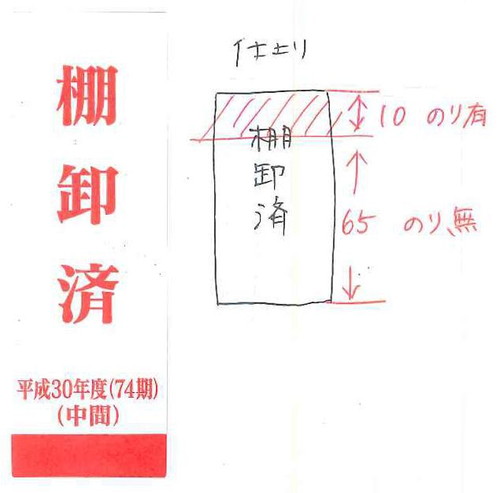 棚
卸
済
平成30年度(74期)
(中間)
仕上り
棚
卸
済
10 のり有
65 のり無